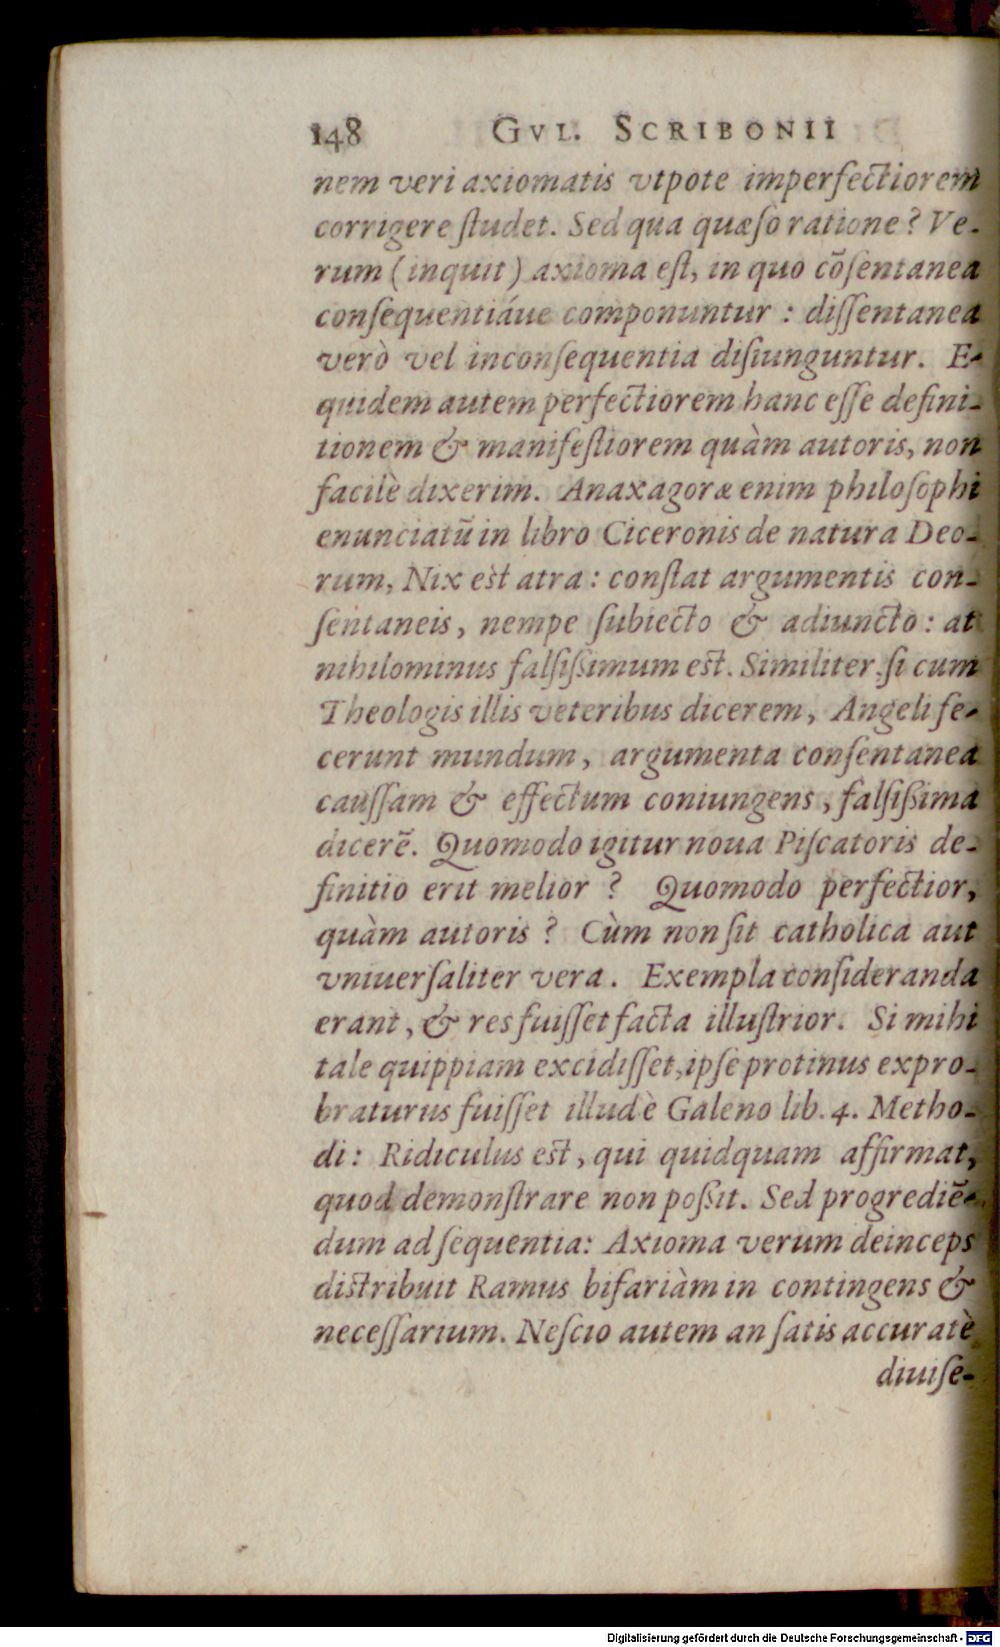 148 GVL. SCRIBONII
nem veri axiomatis vtpote imperfectiorem
corrigere ſtudet. Sed qua quæſo ratione? Ve-
rum (inquit) axioma eſt, in quo cõſentanea
conſequentiáue componuntur : diſſentanea
verò vel inconſequentia diſiunguntur. E-
quidem autem perfectiorem hanc eſſe defini-
tionem & manifeſtiorem quàm autoris, non
facilè dixerim. Anaxagoræ enim philoſophi
enunciatũ in libro Ciceronis de natura Deo-
rum, Nix eſt atra : conſtat argumentis con-
ſentaneis, nempe ſubiecto & adiuncto : at
nihilominus falſiſsimum eſt. Similiter ſi cum
Theologis illis veteribus dicerem, Angeli fe-
cerunt mundum, argumenta conſentanea
cauſſam & effectum coniungens, falſiſsima
dicerẽ. Quomodo igitur noua Piſcatoris de-
finitio erit melior ? Quomodo perfectior,
quàm autoris ? Cùm non ſit catholica aut
vniuerſaliter vera. Exempla conſideranda
erant, & res fuiſſet facta illuſtrior. Si mihi
tale quippiam excidiſſet, ipſe protinus expro-
braturus fuiſſet illud è Galeno lib. 4. Metho-
di : Ridiculus eſt, qui quidquam affirmat,
quod demonſtrare non poſsit. Sed progrediẽ-
dum ad ſequentia: Axioma verum deinceps
diſtribuit Ramus bifariàm in contingens &
neceſſarium. Neſcio autem an ſatis accuratè
diuiſe-
Digitalisierung gefördert durch die Deutsche Forschungsgemeinschaft - DFG